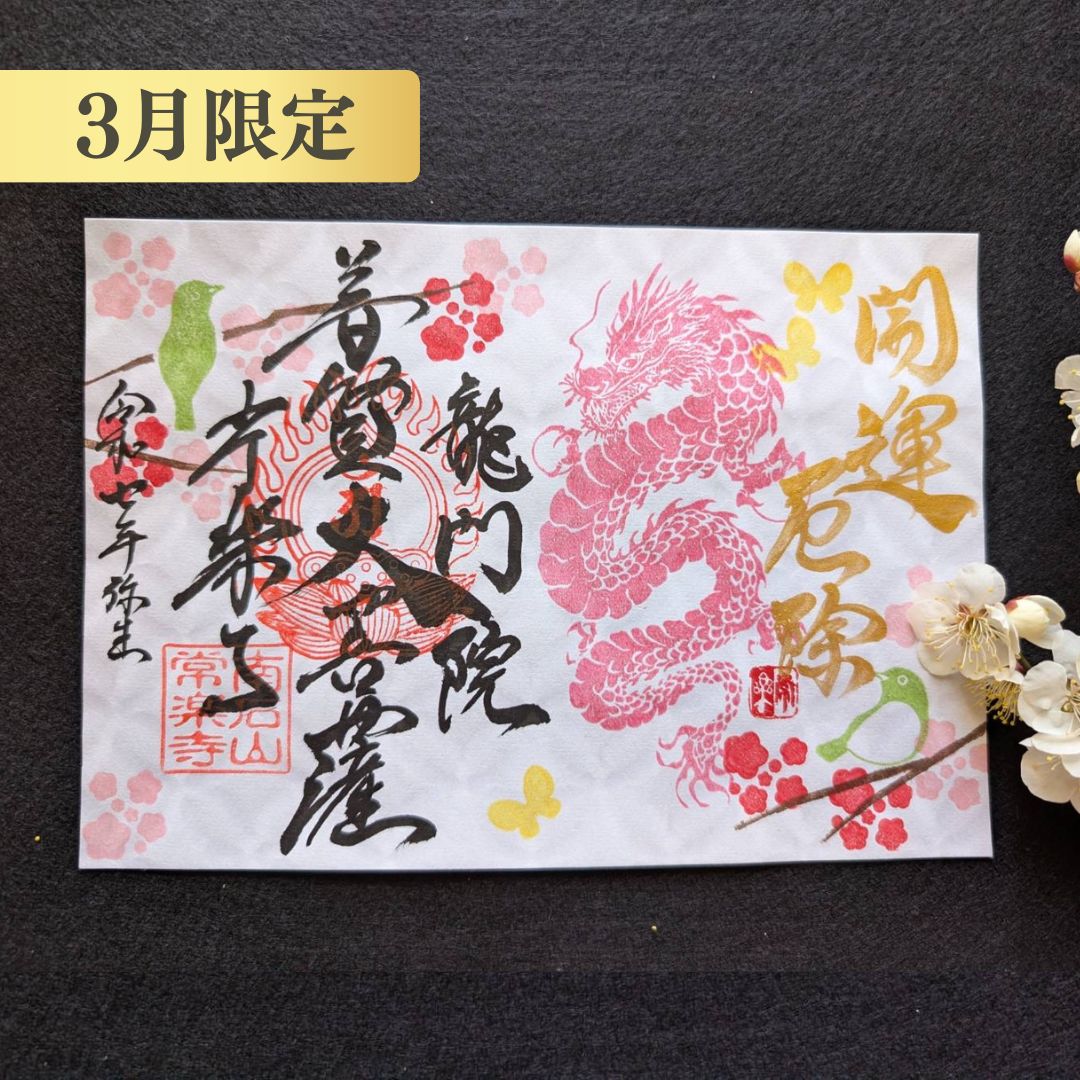 3月限定
開運
厄除
龍門院
普賢大菩薩
常楽寺
令和七年弥生
常楽寺